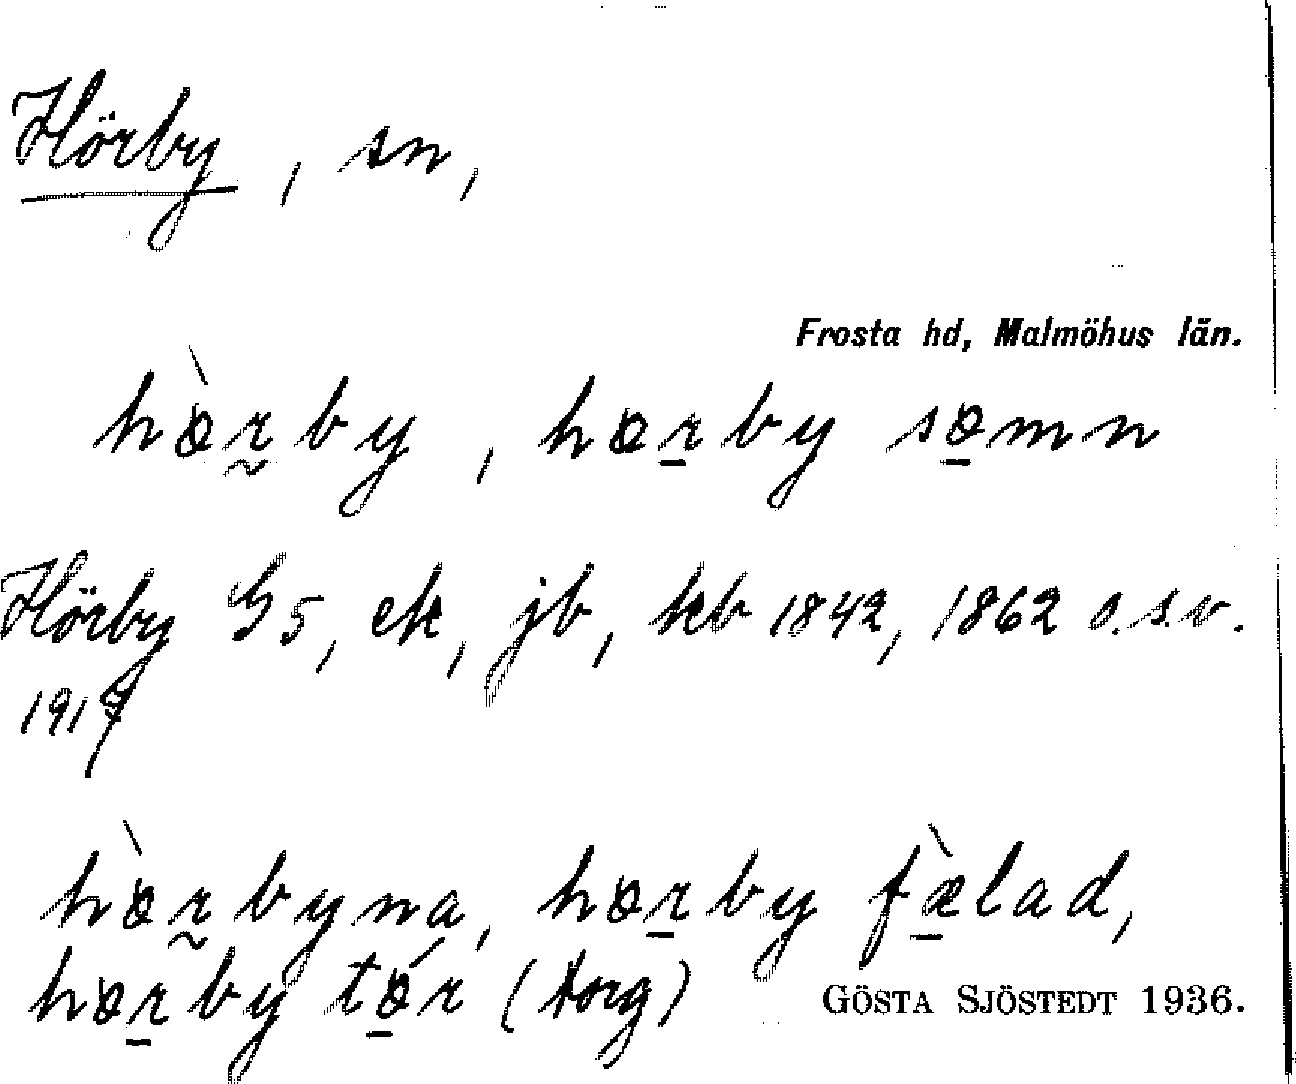 Hörby, sn,
Frosta hd, Malmöhus län.
hö̀r̰by, hör̲by sö̲mn
Hörby G5, ek, jb, kb 1842, 1862 o.s.v.
1917
hö̀r̰byna, hör̲by fæ̲̀lad,
hör̲by tǻ̲r (torg)
GÖSTA SJÖSTEDT 1936.